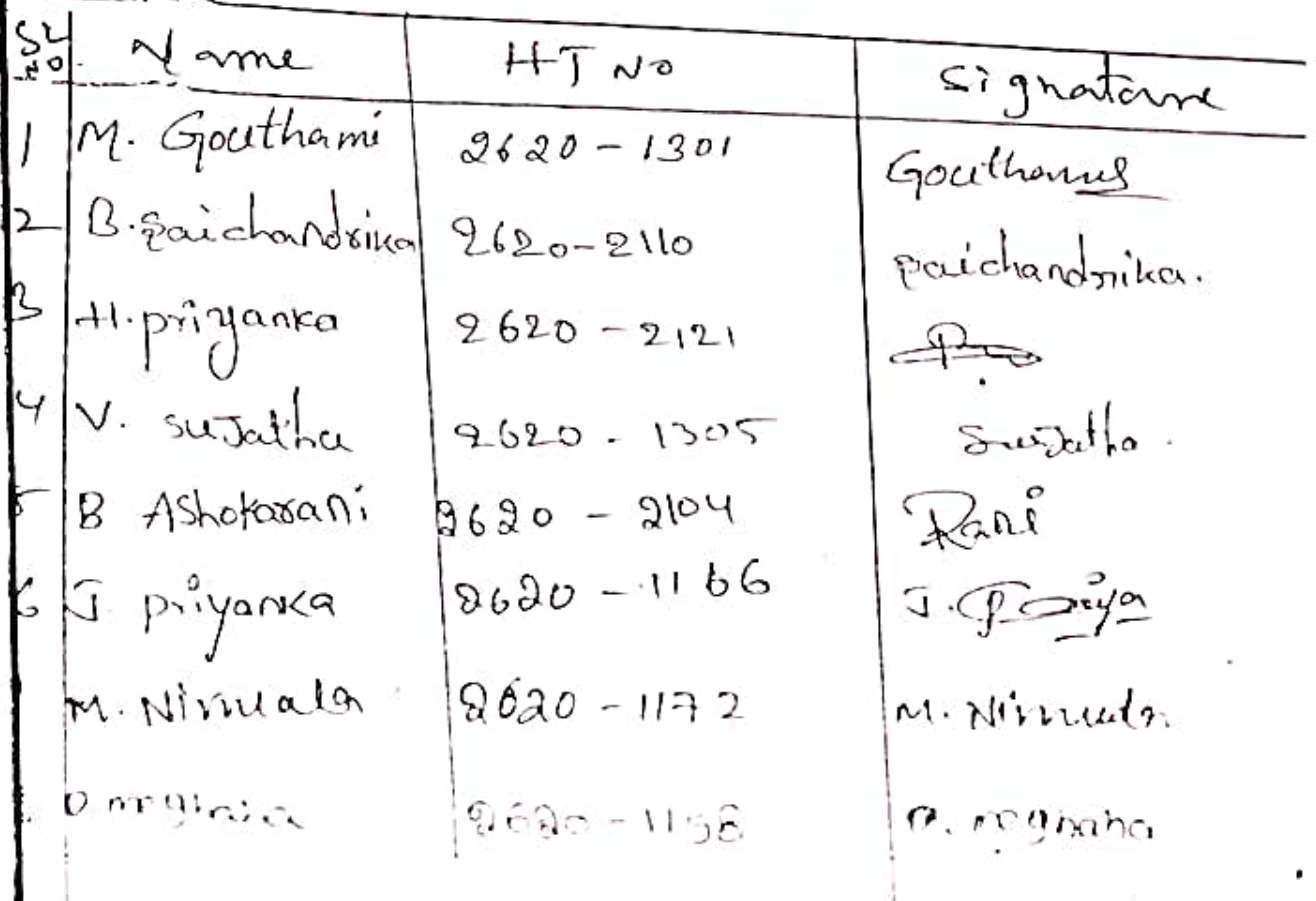 SL NO Name HT NO Signature
1 M. Gouthami 2620-1301 Gouthami
2 B. Saichandrika 2620-2110 Saichandrika.
3 H. priyanka 2620-2121
4 V. suJatha 2620-1305 SuJatha.
5 B Ashokarani 2620-2104 Rani
6 J priyanka 2620-1166 J. Priya
M. Nirmala 2620-1172 M. Nirmala